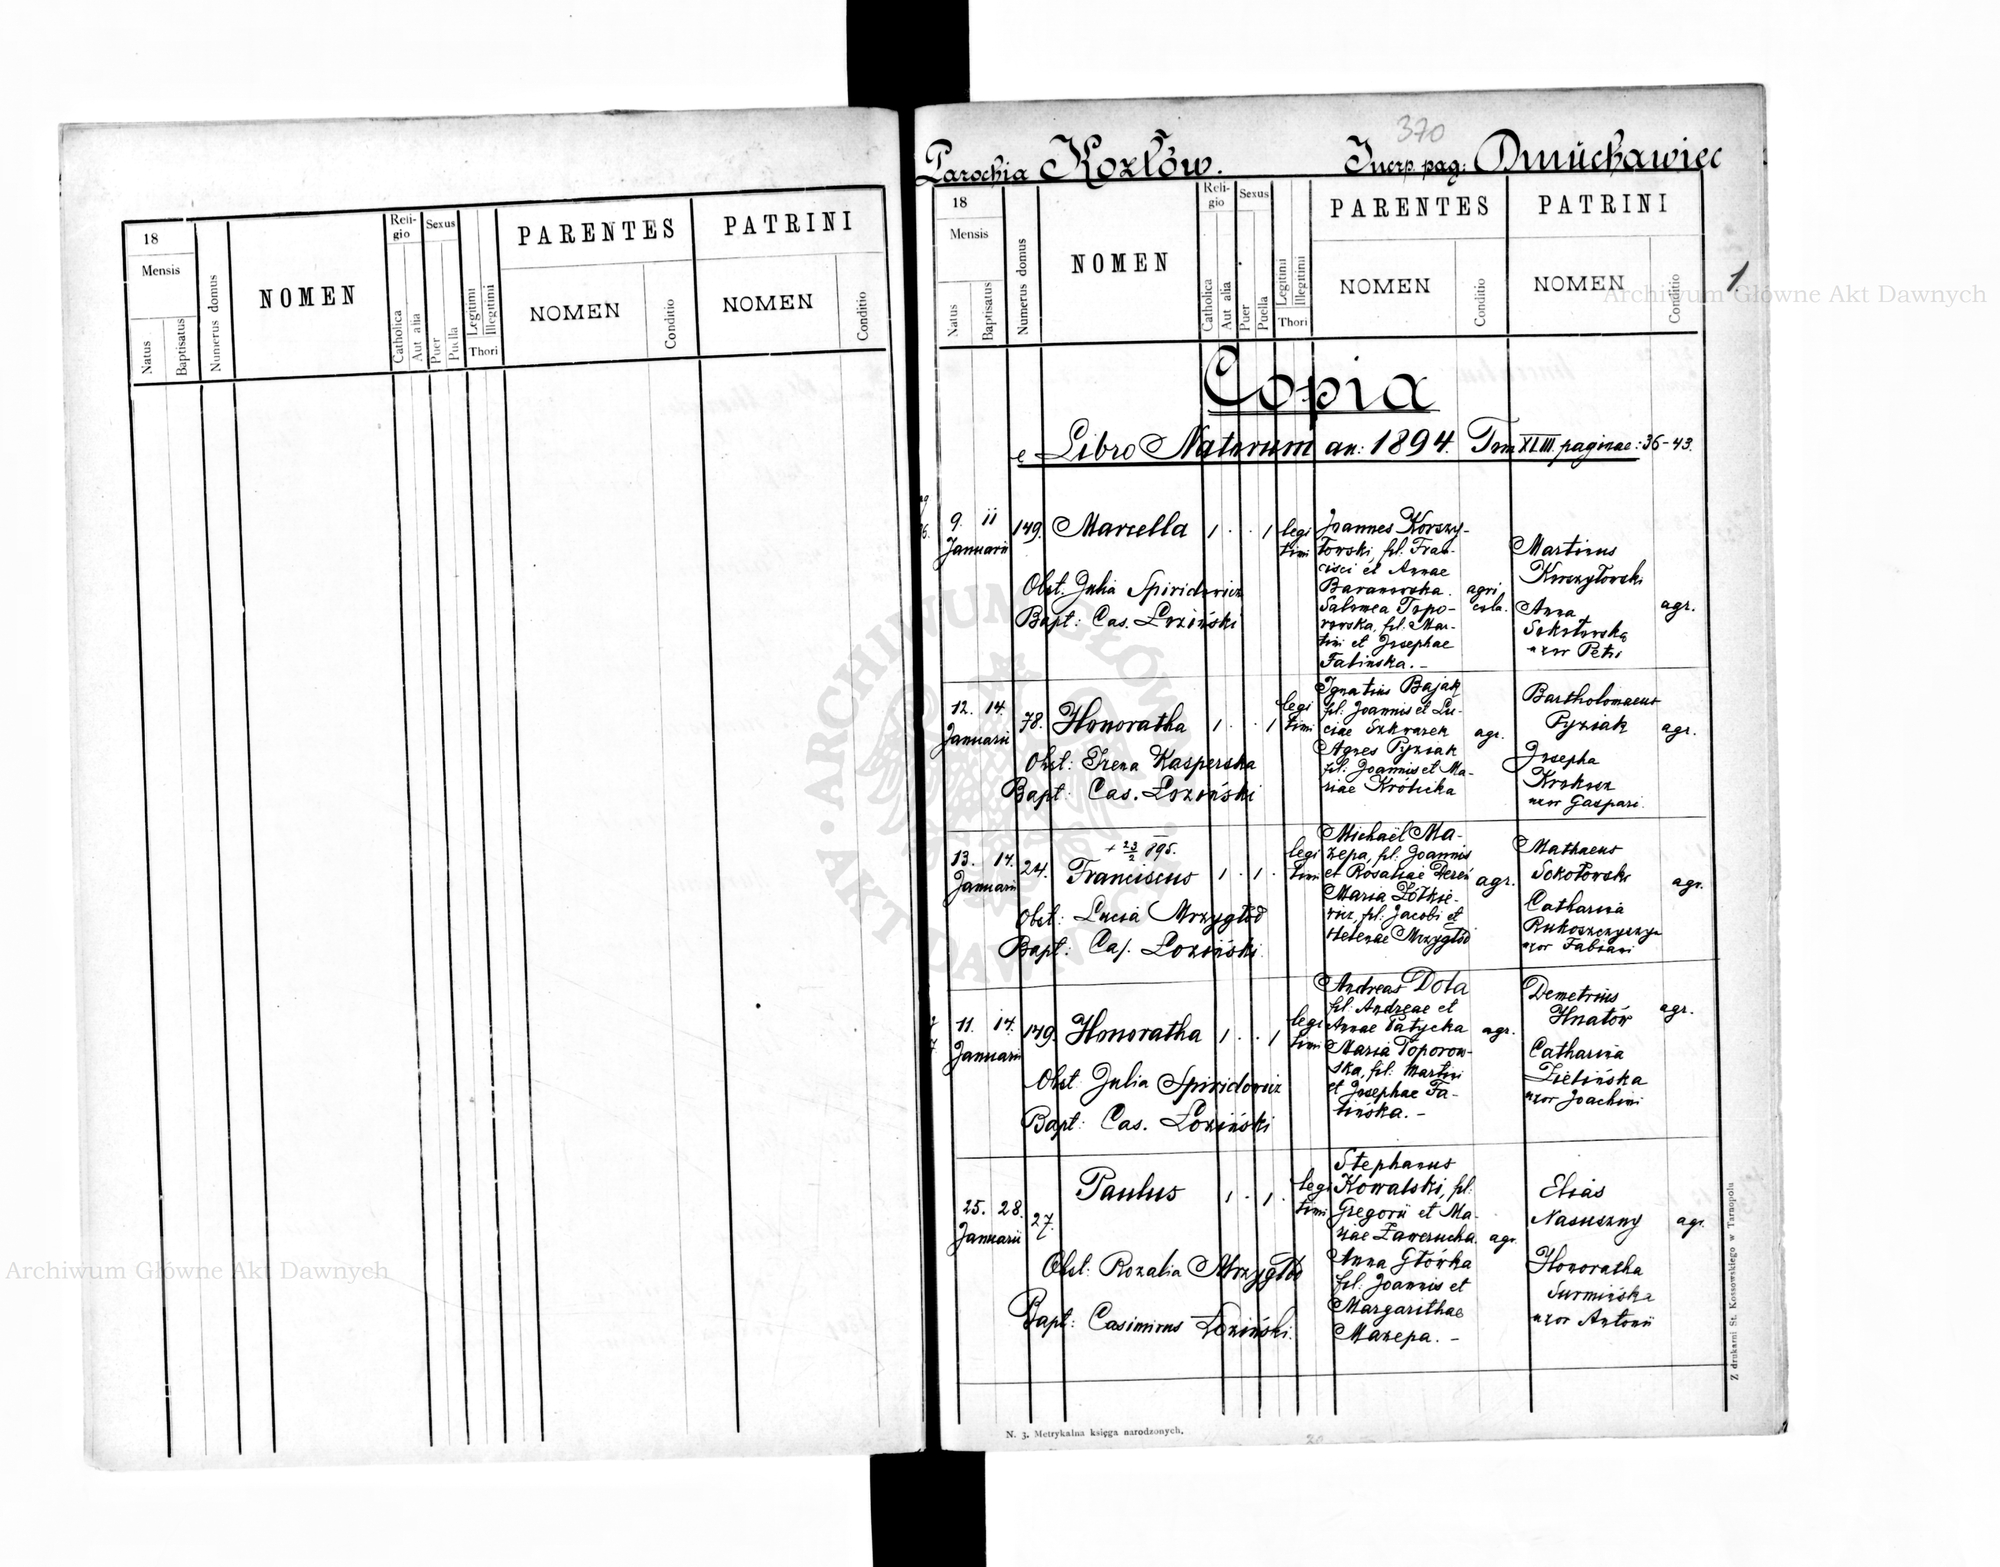 18
Mensis
Natus
Baptisatus
Numerus domus
NOMEN
Reli-
gio
Catholica
Aut alia
Sexus
Puer
Puella
Legitimi
Illegitimi
Thori
PARENTES
NOMEN
Conditio
PATRINI
NOMEN
Conditio
370
Parochia Kozłów. Incrp. pag: Dmuchawiec
1.
18
Mensis
Natus
Baptisatus
Numerus domus
NOMEN
Reli-
gio
Catholica
Aut alia
Sexus
Puer
Puella
Legitimi
Illegitimi
Thori
PARENTES
NOMEN
Conditio
PATRINI
NOMEN
Conditio
Copia
e Libro Natorum an: 1894. Tom XLIII paginae: 36-43.
9. 11
Januarii
149.
Marcella
1 . . 1
legi
timi
Obst. Julia Spiridowicz
Bapt: Cas. Łoziński
Joannes Korszy-
łowski, fil. Fran-
cisci et Annae
Baranowska.
Salomea Topo-
rowska, fil. Mar-
tini et Josephae
Falinska. -
agri
cola.
Martinus
Korszyłowski
Anna
Sokołowska
uxor Petri
agr.
12. 14.
Januarii
78.
Honoratha
1 . . 1
legi
timi
Obst: Irena Kasperska
Bapt: Cas. Łoziński
Ignatius Bajak
fil. Joannis et Lu-
ciae Szkwarek
Agnes Pyziak
fil. Joannis et Ma-
riae Królicka
agr.
Bartholomaeus
Pyziak
Josepha
Krokosz
uxor Gaspari.
agr.
13. 14.
Januarii
24.
+ 23/2 895.
Franciscus
1 . 1 .
legi
timi
Obst: Lucia Mrzygłód
Bapt: Cas. Łoziński
Michaël Ma-
zepa, fil. Joannis
et Rosaliae Dereń
Maria Żółkie-
wicz, fil. Jacobi et
Helenae Mrzygłód
agr.
Mathaeus
Sokołowski
Catharina
uxor Fabiani
agr.
11. 14.
Januarii
149.
Honoratha
1 . . 1
legi
timi
Obst: Julia Spiridowicz
Bapt: Cas. Łoziński
Andreas Dola
fil. Andreae et
Annae Patycka
Maria Toporow-
ska, fil. Martini
et Josephae Fa-
lińska. -
agr.
Demetrius
Hnatów
Catharina
Zielińska
uxor Joachimi
agr.
25. 28.
Januarii
27.
Paulus
1 . 1 .
legi
timi
Obst: Rozalia Mrzygłód
Bapt: Casimirus Łoziński.
Stephanus
Kowalski, fil.
Gregorii et Ma-
riae Zawerucha.
Anna Główka
fil. Joannis et
Margarithae
Mazepa. -
agr.
Elias
Nasuszny
Honoratha
Surmińska
uxor Antonii
agr.
N. 3. Metrykalna księga narodzonych.
Z drukarni St. Kossowskiego w Tarnopolu
Archiwum Główne Akt Dawnych
Archiwum Główne Akt Dawnych
ARCHIWUM GŁÓWNE AKT DAWNYCH